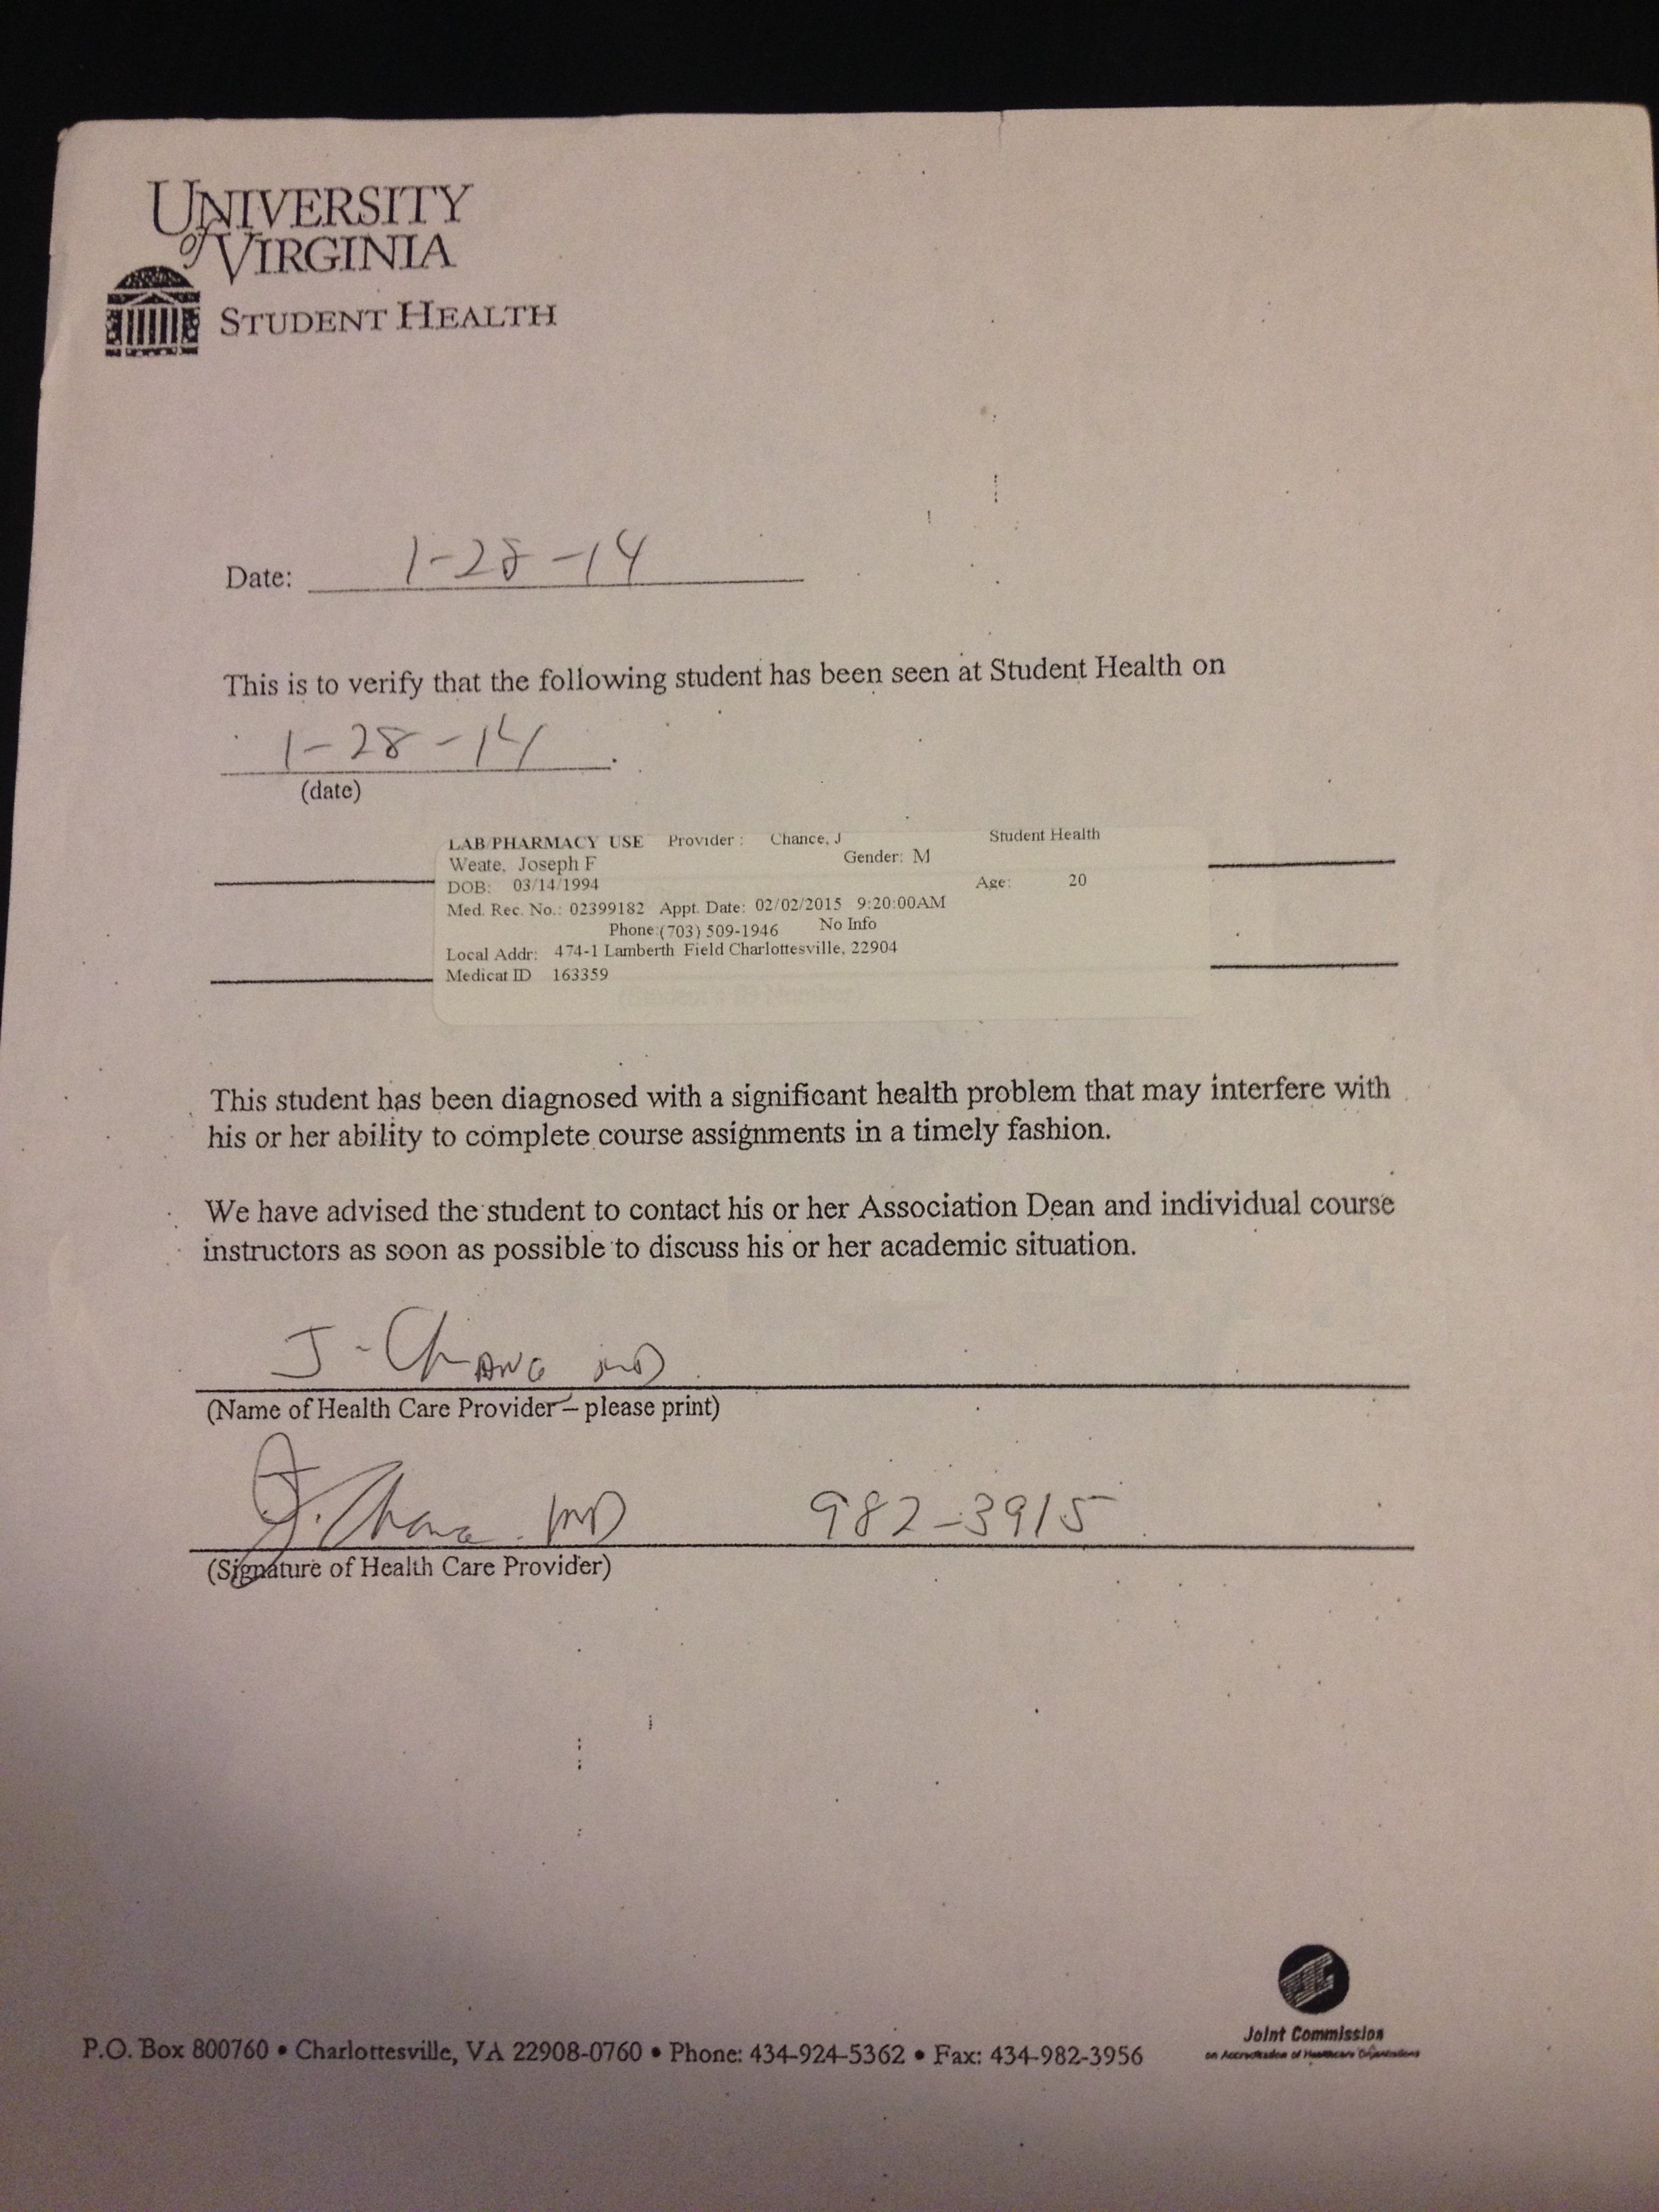 UNIVERSITY
of VIRGINIA
STUDENT HEALTH
Date: 1-28-14
This is to verify that the following student has been seen at Student Health on
1-28-14.
(date)
LAB/PHARMACY USE Provider : Chance, J Student Health
Weate, Joseph F Gender: M
DOB: 03/14/1994 Age: 20
Med. Rec. No.: 02399182 Appt. Date: 02/02/2015 9:20:00AM
Phone:(703) 509-1946 No Info
Local Addr: 474-1 Lamberth Field Charlottesville, 22904
Medicat ID 163359
(Student's ID Number)
This student has been diagnosed with a significant health problem that may interfere with
his or her ability to complete course assignments in a timely fashion.
We have advised the student to contact his or her Association Dean and individual course
instructors as soon as possible to discuss his or her academic situation.
J-CHANG MD
(Name of Health Care Provider – please print)
J. Chang MD 982-3915
(Signature of Health Care Provider)
Joint Commission
on Accreditation of Healthcare Organizations
P.O. Box 800760 • Charlottesville, VA 22908-0760 • Phone: 434-924-5362 • Fax: 434-982-3956